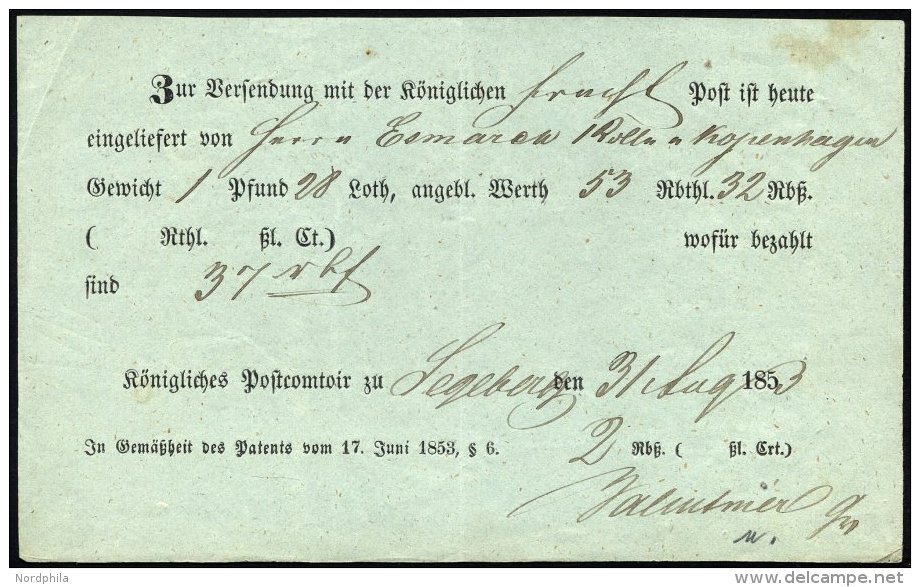 Zur Versendung mit der Königlichen fracht Post ist heute
eingeliefert von Herrn Esmarch Kopenhagen
Gewicht 1 Pfund 28 Loth, angebl. Werth 53 Rbthl. 32 Rbß.
( Rthl. ßl. Ct.) wofür bezahlt
sind 37 rbß
Königliches Postcomtoir zu Segeberg den 31 Aug 1853
In Gemäßheit des Patents vom 17. Juni 1853, § 6. 2 Rbß. ( ßl. Crt.)
Nordphila
delcampe.net